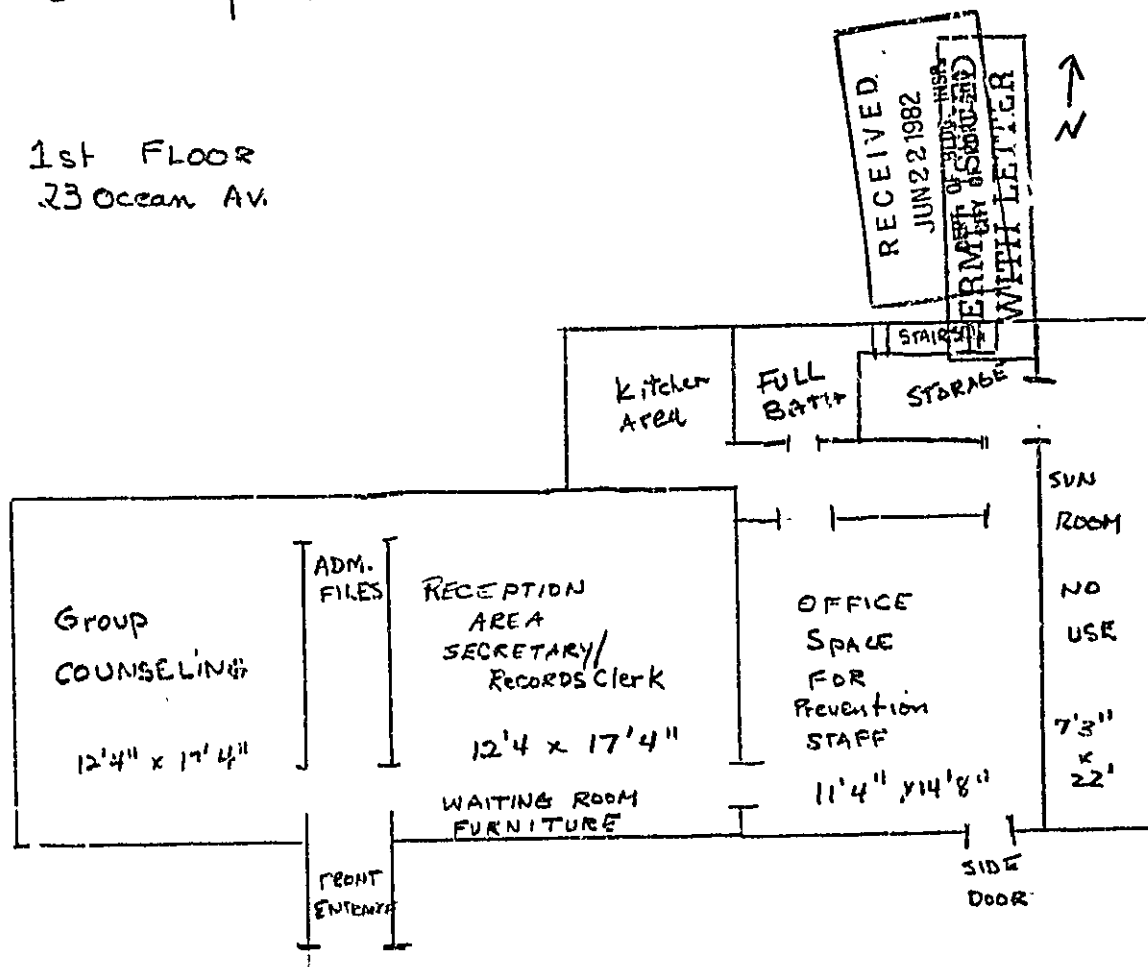 1st FLOOR
23 Ocean Av.
RECEIVED
JUN 22 1982
DEPT. OF BLDG. INSP.
CITY OF
WITH LETTER
N
STAIRS
Kitchen
Area
FULL
BATH
STORAGE
SUN
ROOM
NO
USE
7'3"
x
22'
ADM.
FILES
Group
COUNSELING
12'4" x 17'4"
RECEPTION
AREA
SECRETARY/
RECORDS Clerk
12'4 x 17'4"
WAITING ROOM
FURNITURE
OFFICE
SPACE
FOR
Prevention
STAFF
11'4" x 14'8"
FRONT
ENTRANCE
SIDE
DOOR